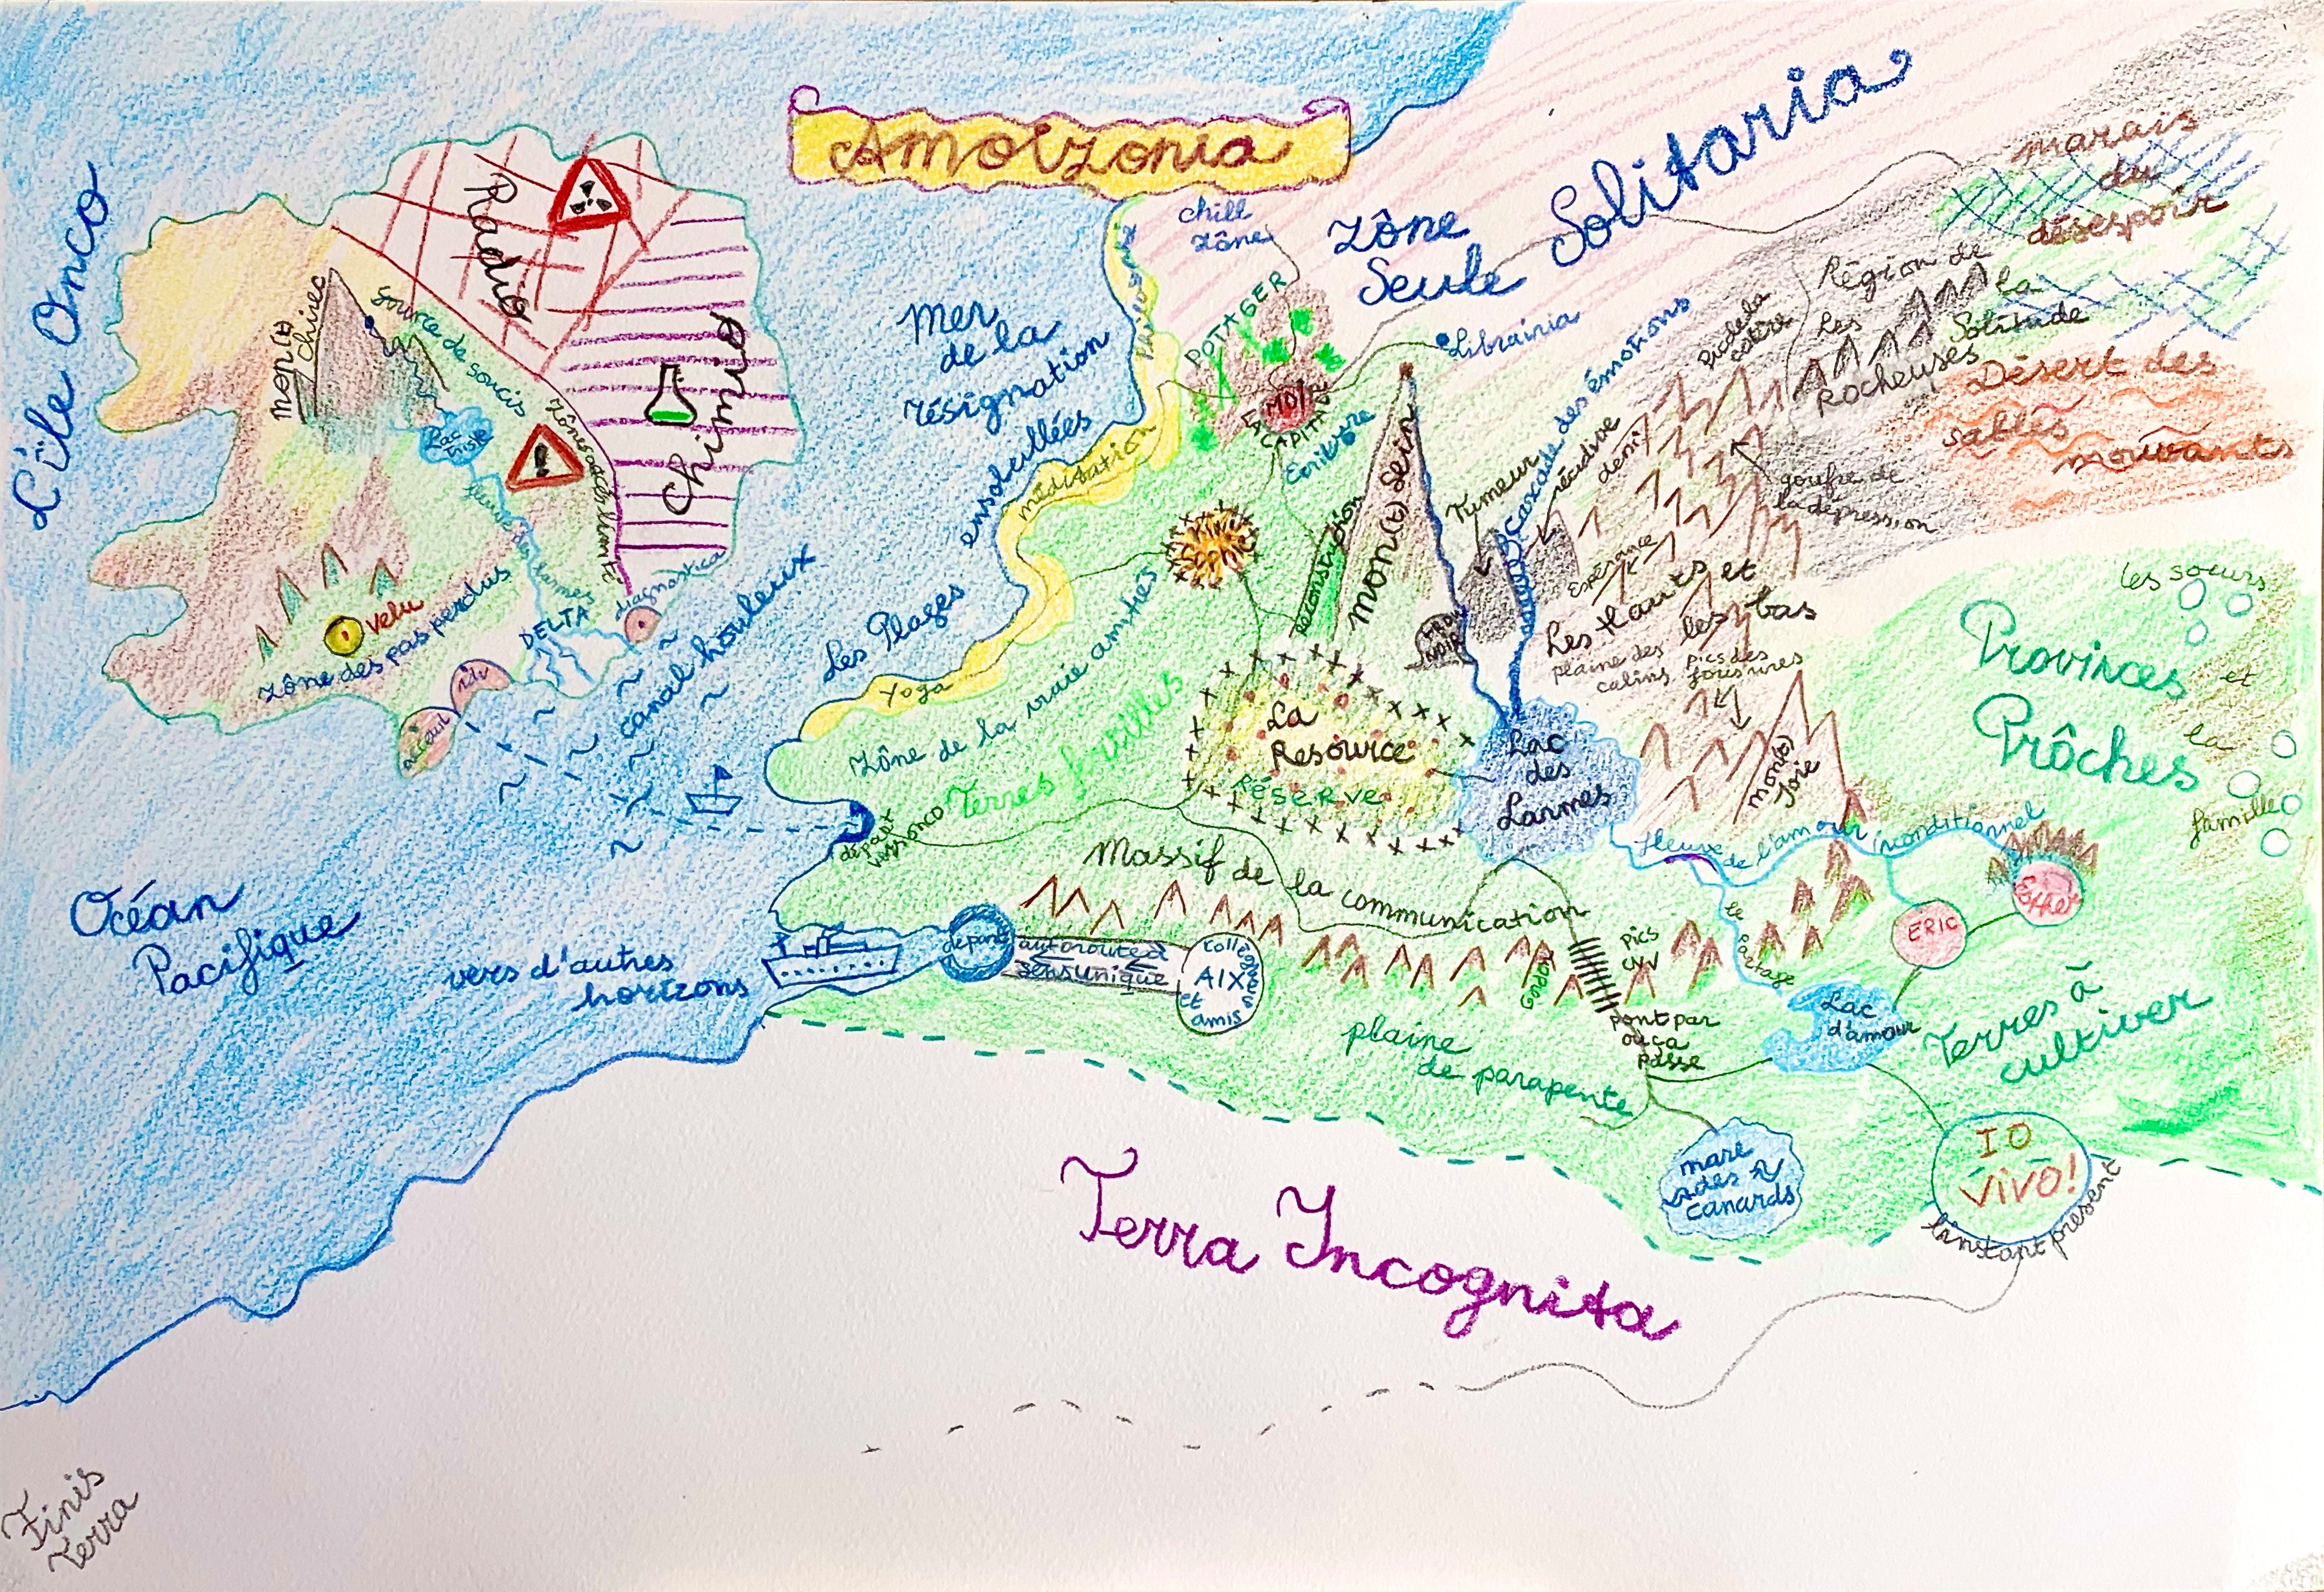 Amoizonia
L'île Onco
Radio
Chimio
mon(t)
Chivec
source de soucis
Lac
triste
fleuve des larmes
Zône accès limité
Velu
Zône des pas perdus
DELTA
diagnostica
rdv
accueil
canal houleux
Mer
de la
résignation
Les Plages
ensoleillées
méditation
Yoga
chill
zône
Zône
Seule Solitaria
POTAGER
MOI
LA CAPITALE
Librairia
Ecrivore
marais
du
désespoir
Région de
la
Solitude
Les
Rocheuses
Pic de la
colère
Désert des
sables
mouvants
goufre de
la dépression
Cascade des émotions
Tumeur
récidive
deni
Espérance
mon(t) Sein
Reconstruction
TROU
NOIR
Les Hauts et
les bas
plaine des
calins
Pics des
fous rires
mon(t)
Joie
Zône de la vraie amitiés
Terres fertiles
La
Resource
RÉSERVE
Lac
des
Larmes
départ
vers ONCO
Provinces
Prôches
les soeurs
et
la
famille
fleuve de l'amour inconditionnel
Effet
ERIC
le Partage
Lac
d'amour
Terres à
cultiver
Massif de la communication
Pics
CNV
GORDON
pont par
où ça
passe
Océan
Pacifique
vers d'autres
horizons
départ
autoroute à
sens unique
Collègues
AIX
et
amis
plaine
de parapente
mare
des
canards
IO
VIVO!
l'instant présent
Terra Incognita
Finis
Terra